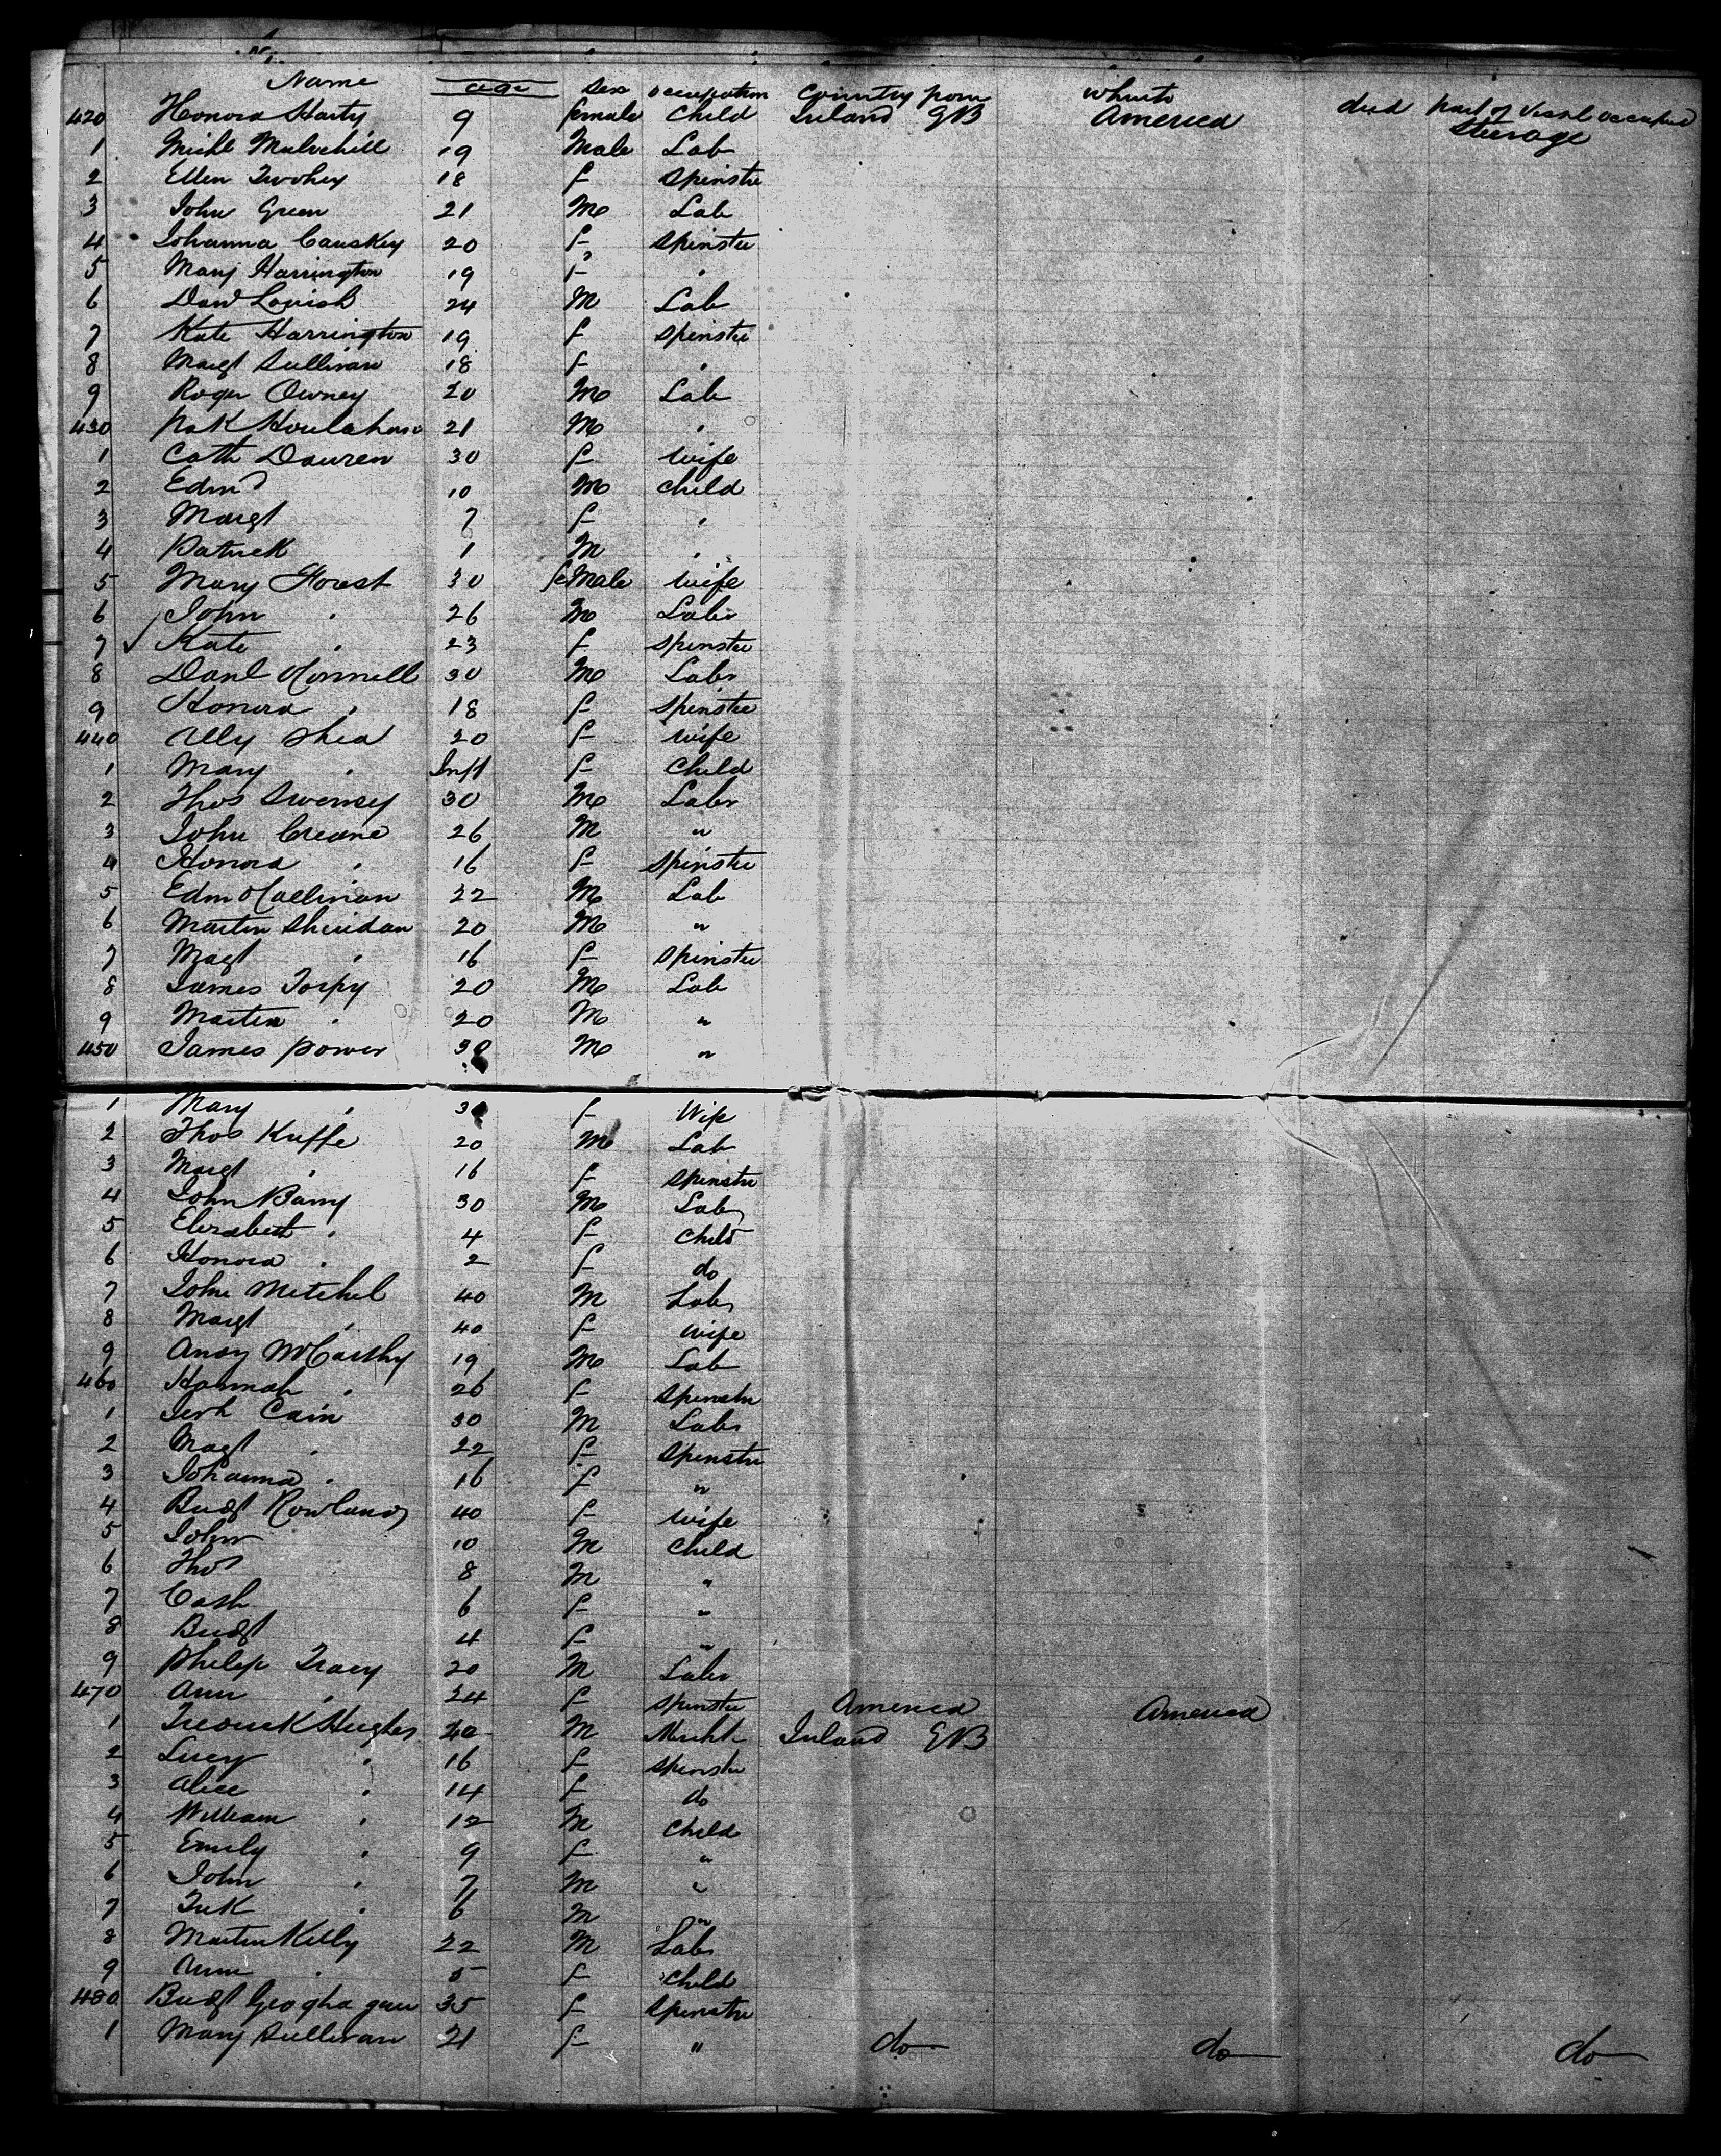 Name age sex occupation Country from whereto died part of vessel occupied
420 Honora Harty 9 female Child Ireland GB America Steerage
1 Michl Mulvehill 19 Male Lab
2 Ellen Twohey 18 f Spinster
3 John Green 21 M Lab
4 Johanna Causkey 20 f Spinster
5 Mary Harrington 19 f "
6 Danl 24 M Lab
7 Kate Harrington 19 f Spinster
8 Margt Sullivan 18 f "
9 Roger Owney 20 M Lab
430 Pak Houlahan 21 M "
1 Cath Dauren 30 f wife
2 Edmd 10 M child
3 Margt 7 f "
4 Patrick 1 M "
5 Mary Horest 30 feMale wife
6 John " 26 M Labr
7 ✓ Kate " 23 f Spinster
8 Danl Connell 30 M Labr
9 Honora " 18 f Spinster
440 Elly Shea 20 f wife
1 Mary " Inft f Child
2 Thos Sweney 30 M Labr
3 John Creane 26 M "
4 Honora " 16 f Spinster
5 Edm Callinan 22 M Lab
6 Martin Sheridan 20 M "
7 Magt " 16 f Spinster
8 James Torpy 20 M Lab
9 Martin " 20 M "
450 James Power 30 M "
1 Mary " f Wife
2 Thos Kuffe 20 M Lab
3 Margt " 16 f Spinster
4 John Barry 30 M Labr
5 Elizabeth " 4 f Child
6 Honora " 2 f do
7 John Mitchel 40 M Labr
8 Margt " 40 f wife
9 Andy McCarthy 19 M Lab
460 Hannah " 26 f Spinster
1 Jerh Cain 30 M Labr
2 Magt " 22 f Spinster
3 Johanna " 16 f "
4 Bridgt Rowland 40 f wife
5 John 10 M Child
6 Thos 8 M "
7 Cath 6 f "
8 Bridgt 4 f "
9 Philip Tracy 20 M Labr
470 Ann " 24 f Spinster America America
1 Frederick Hughes 40 M Mercht Ireland GB
2 Lucy " 16 f Spinster
3 Alice " 14 f do
4 William " 12 M Child
5 Emily " 9 f "
6 John " 7 M "
7 Frk " 6 M "
8 Martin Kelly 22 M Labr
9 Ann " 5 f Child
480 Bridgt Geoghagan 35 f Spinster
1 Mary Sullivan 21 f " do do do